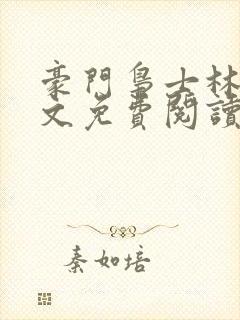 豪門鳥士林
文免費閱讀
秦如培